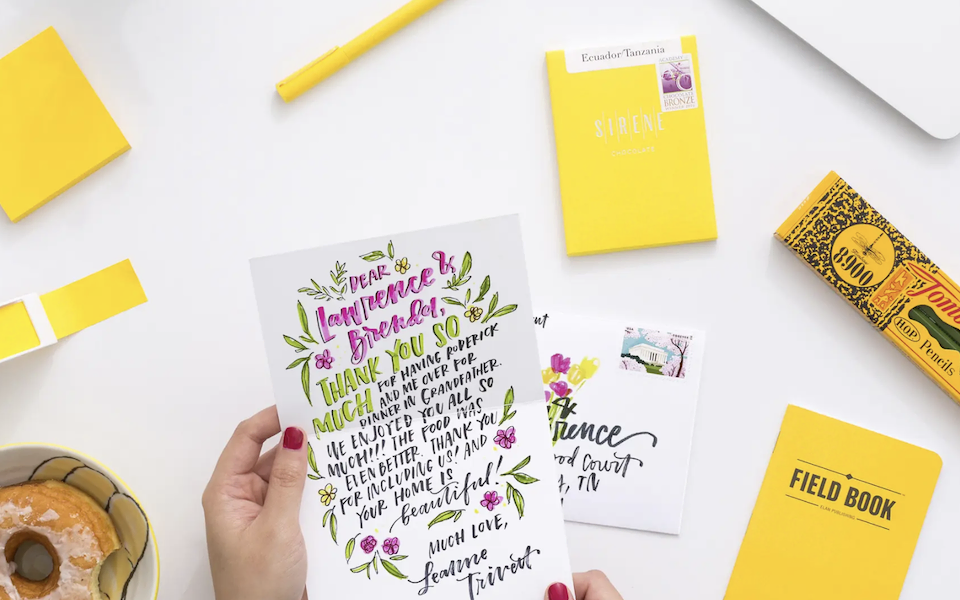 Ecuador/Tanzania
BRONZE
SIRENE
CHOCOLATE
8900
HOP Pencils
DEAR
Lawrence &
Brenda,
THANK YOU SO
MUCH FOR HAVING RODERICK
AND ME OVER FOR
DINNER IN GRANDFATHER.
WE ENJOYED YOU ALL SO
MUCH!!! THE FOOD WAS
EVEN BETTER. THANK YOU
FOR INCLUDING US! AND
YOUR HOME IS
beautiful!
MUCH LOVE,
Leanne
Trivett
&
Court
TN
FIELD BOOK